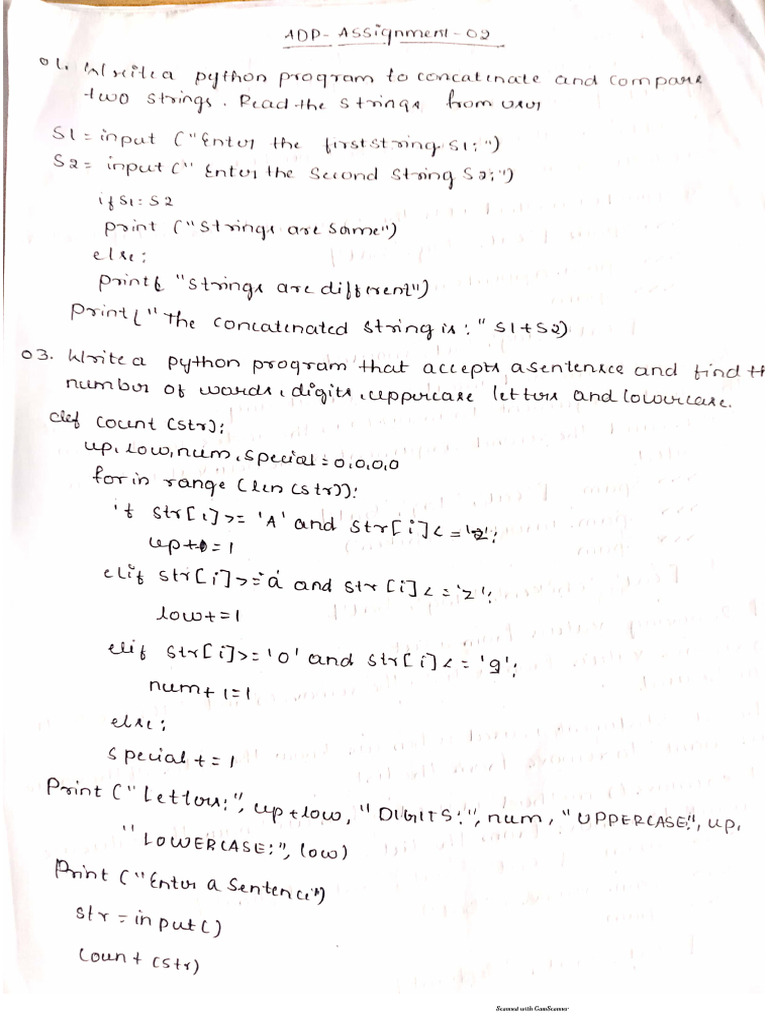 ADP- ASSignment-02
01. Write a python program to concatenate and compare
two strings. Read the strings from user
S1 = input ("Enter the first string S1:")
S2 = input (" Enter the Second String S2:")
if S1: S2
print ("Strings are same")
else:
print( "Strings are different")
print("The concatenated string is:" S1+S2)
03. Write a python program that accepts a sentensce and find th
number of words, digits, uppercase letters and lowercase.
def count (str):
up, low, num, special = 0,0,0,0
for in range (len (str)):
if str[i]>= 'A' and str[i]<= 'z':
up+=1
elif str[i]>='a' and str[i]<='z':
low+=1
elif str[i]>='0' and str[i]<= '9':
num+1=1
else:
special+=1
Print ("Letters:", up+low, "DIGITS:", num, "UPPERCASE:", up,
"LOWERCASE:", low)
Print ("Enter a Sentence")
str = input()
Count (str)
Scanned with CamScanner